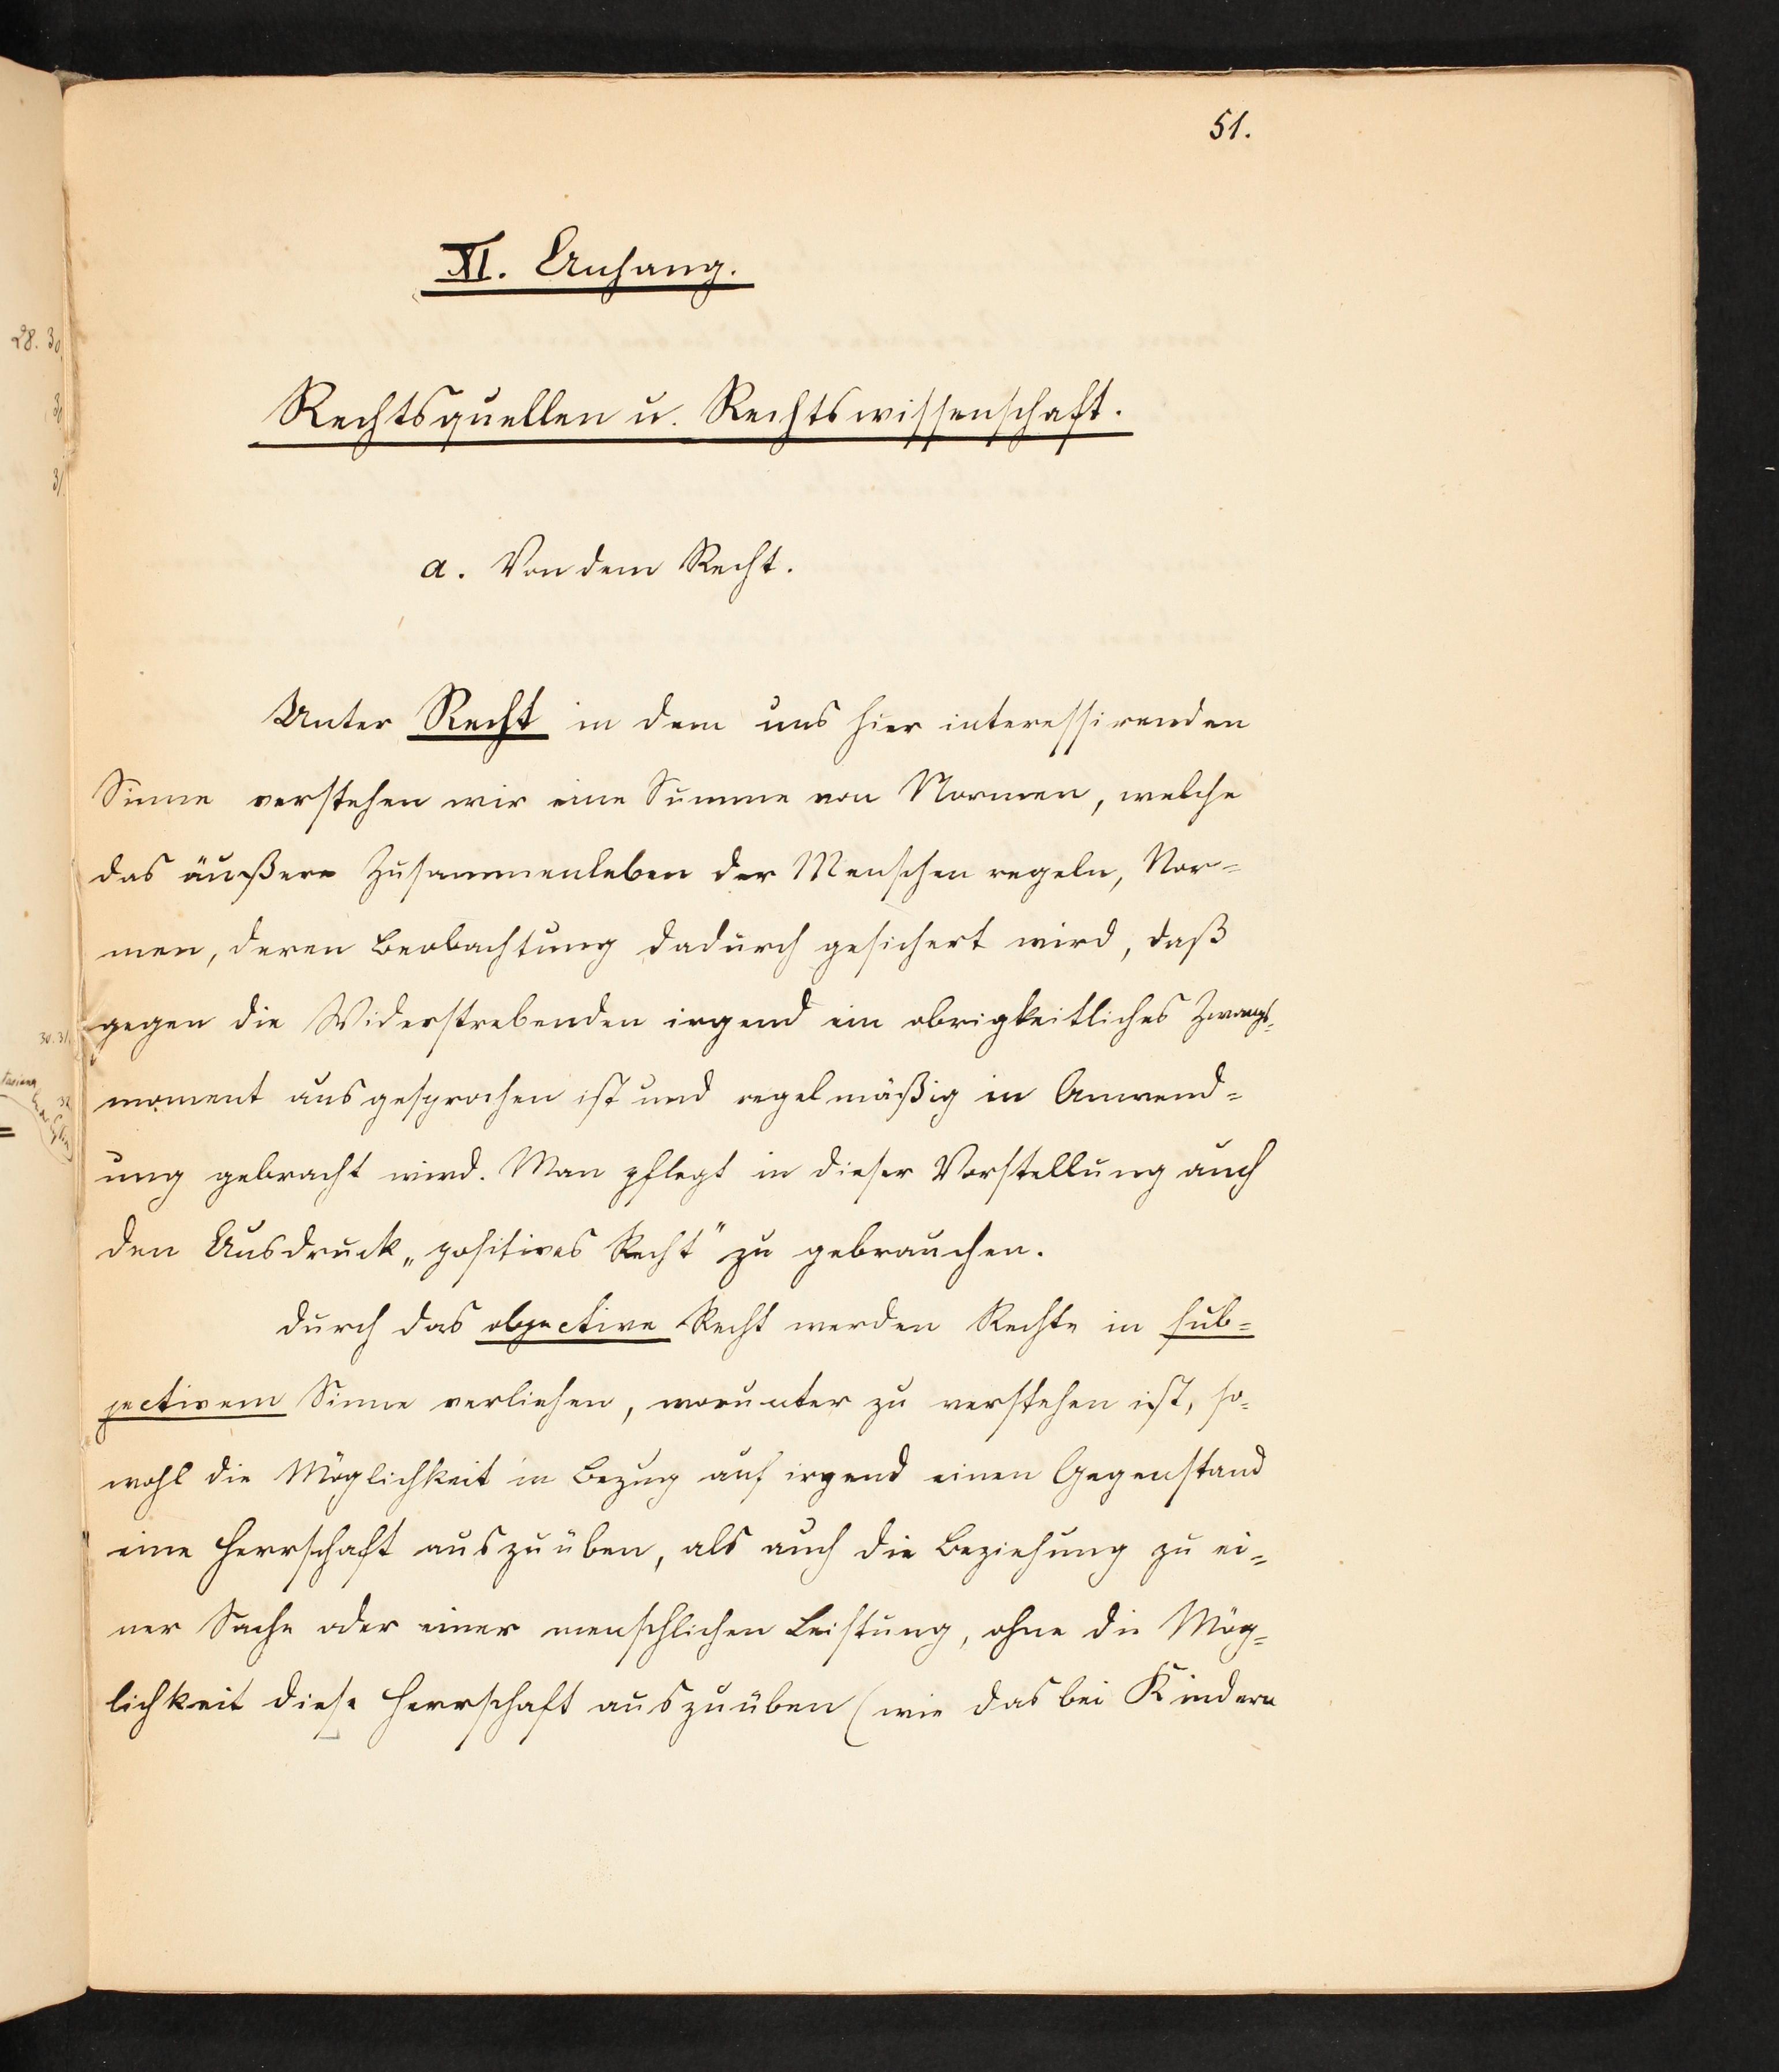 51.
XI. Anhang.
Rechtsquellen u. Rechtswissenschaft.
a. Von dem Recht.
Unter Recht in dem uns hier interessirenden
Sinne verstehen wir eine Summe von Normen, welche
das äußere Zusammenleben der Menschen regeln, Nor=
men, deren Beobachtung dadurch gesichert wird, daß
gegen die Widerstrebenden irgend ein obrigkeitliches Zwangs=
moment ausgesprochen ist und regelmäßig in Anwend=
ung gebracht wird. Man pflegt in dieser Vorstellung auch
den Ausdruck „positives Recht" zu gebrauchen.
Durch das objective Recht werden Rechte in sub=
jectivem Sinne verliehen, worunter zu verstehen ist, so=
wohl die Möglichkeit in Bezug auf irgend einen Gegenstand
eine Herrschaft auszuüben, als auch die Beziehung zu ei=
ner Sache oder einer menschlichen Leistung, ohne die Mög=
lichkeit diese Herrschaft auszuüben (wie das bei Kindern
28. 30
31
30. 31
32